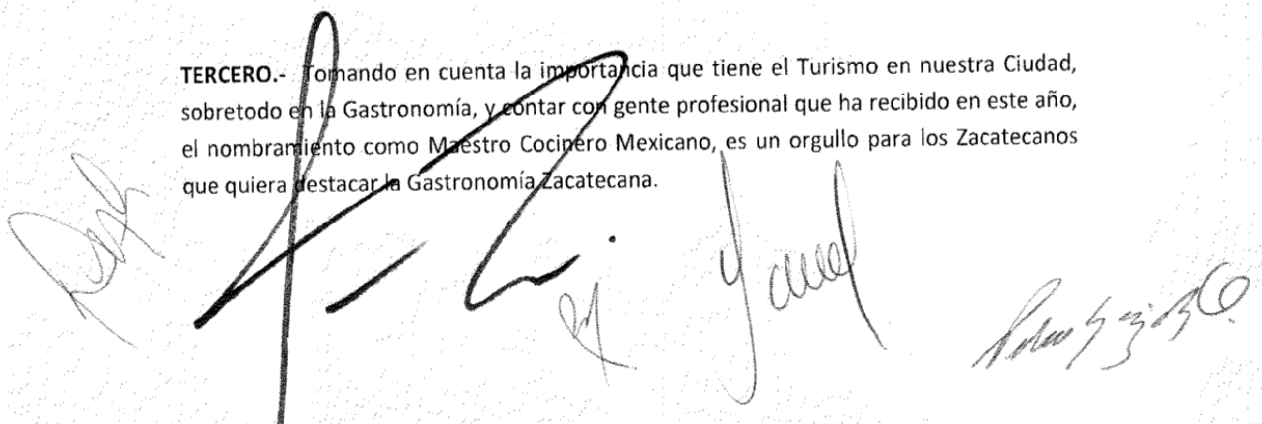 TERCERO.- Tomando en cuenta la importancia que tiene el Turismo en nuestra Ciudad,
sobretodo en la Gastronomía, y contar con gente profesional que ha recibido en este año,
el nombramiento como Maestro Cocinero Mexicano, es un orgullo para los Zacatecanos
que quiera destacar la Gastronomía Zacatecana.